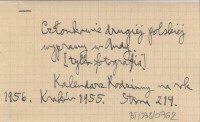 Członkowie drugiej polskiej
wyprawy w Andy.
[tytuł fotografii]
Kalendarz Rodzinny na rok
1956. Kraków 1955. Strona 214.